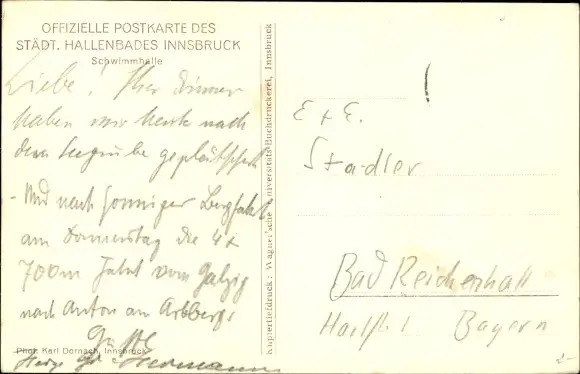 OFFIZIELLE POSTKARTE DES
STÄDT. HALLENBADES INNSBRUCK
Schwimmhalle
Liebe! Hier
haben wir heute nach
der Seegrube geplätschert
- Und nach sonniger Bergfahrt
am Donnerstag die 4 x
700m Fahrt vom Galzig
nach Anton am Arlberg.
Phot. Karl Dornach, Innsbruck
Hermann
Kupfertiefdruck: Wagner'sche Universitäts-Buchdruckerei, Innsbruck
E + E.
Stadler
Bad Reichenhall
Bayern
2-